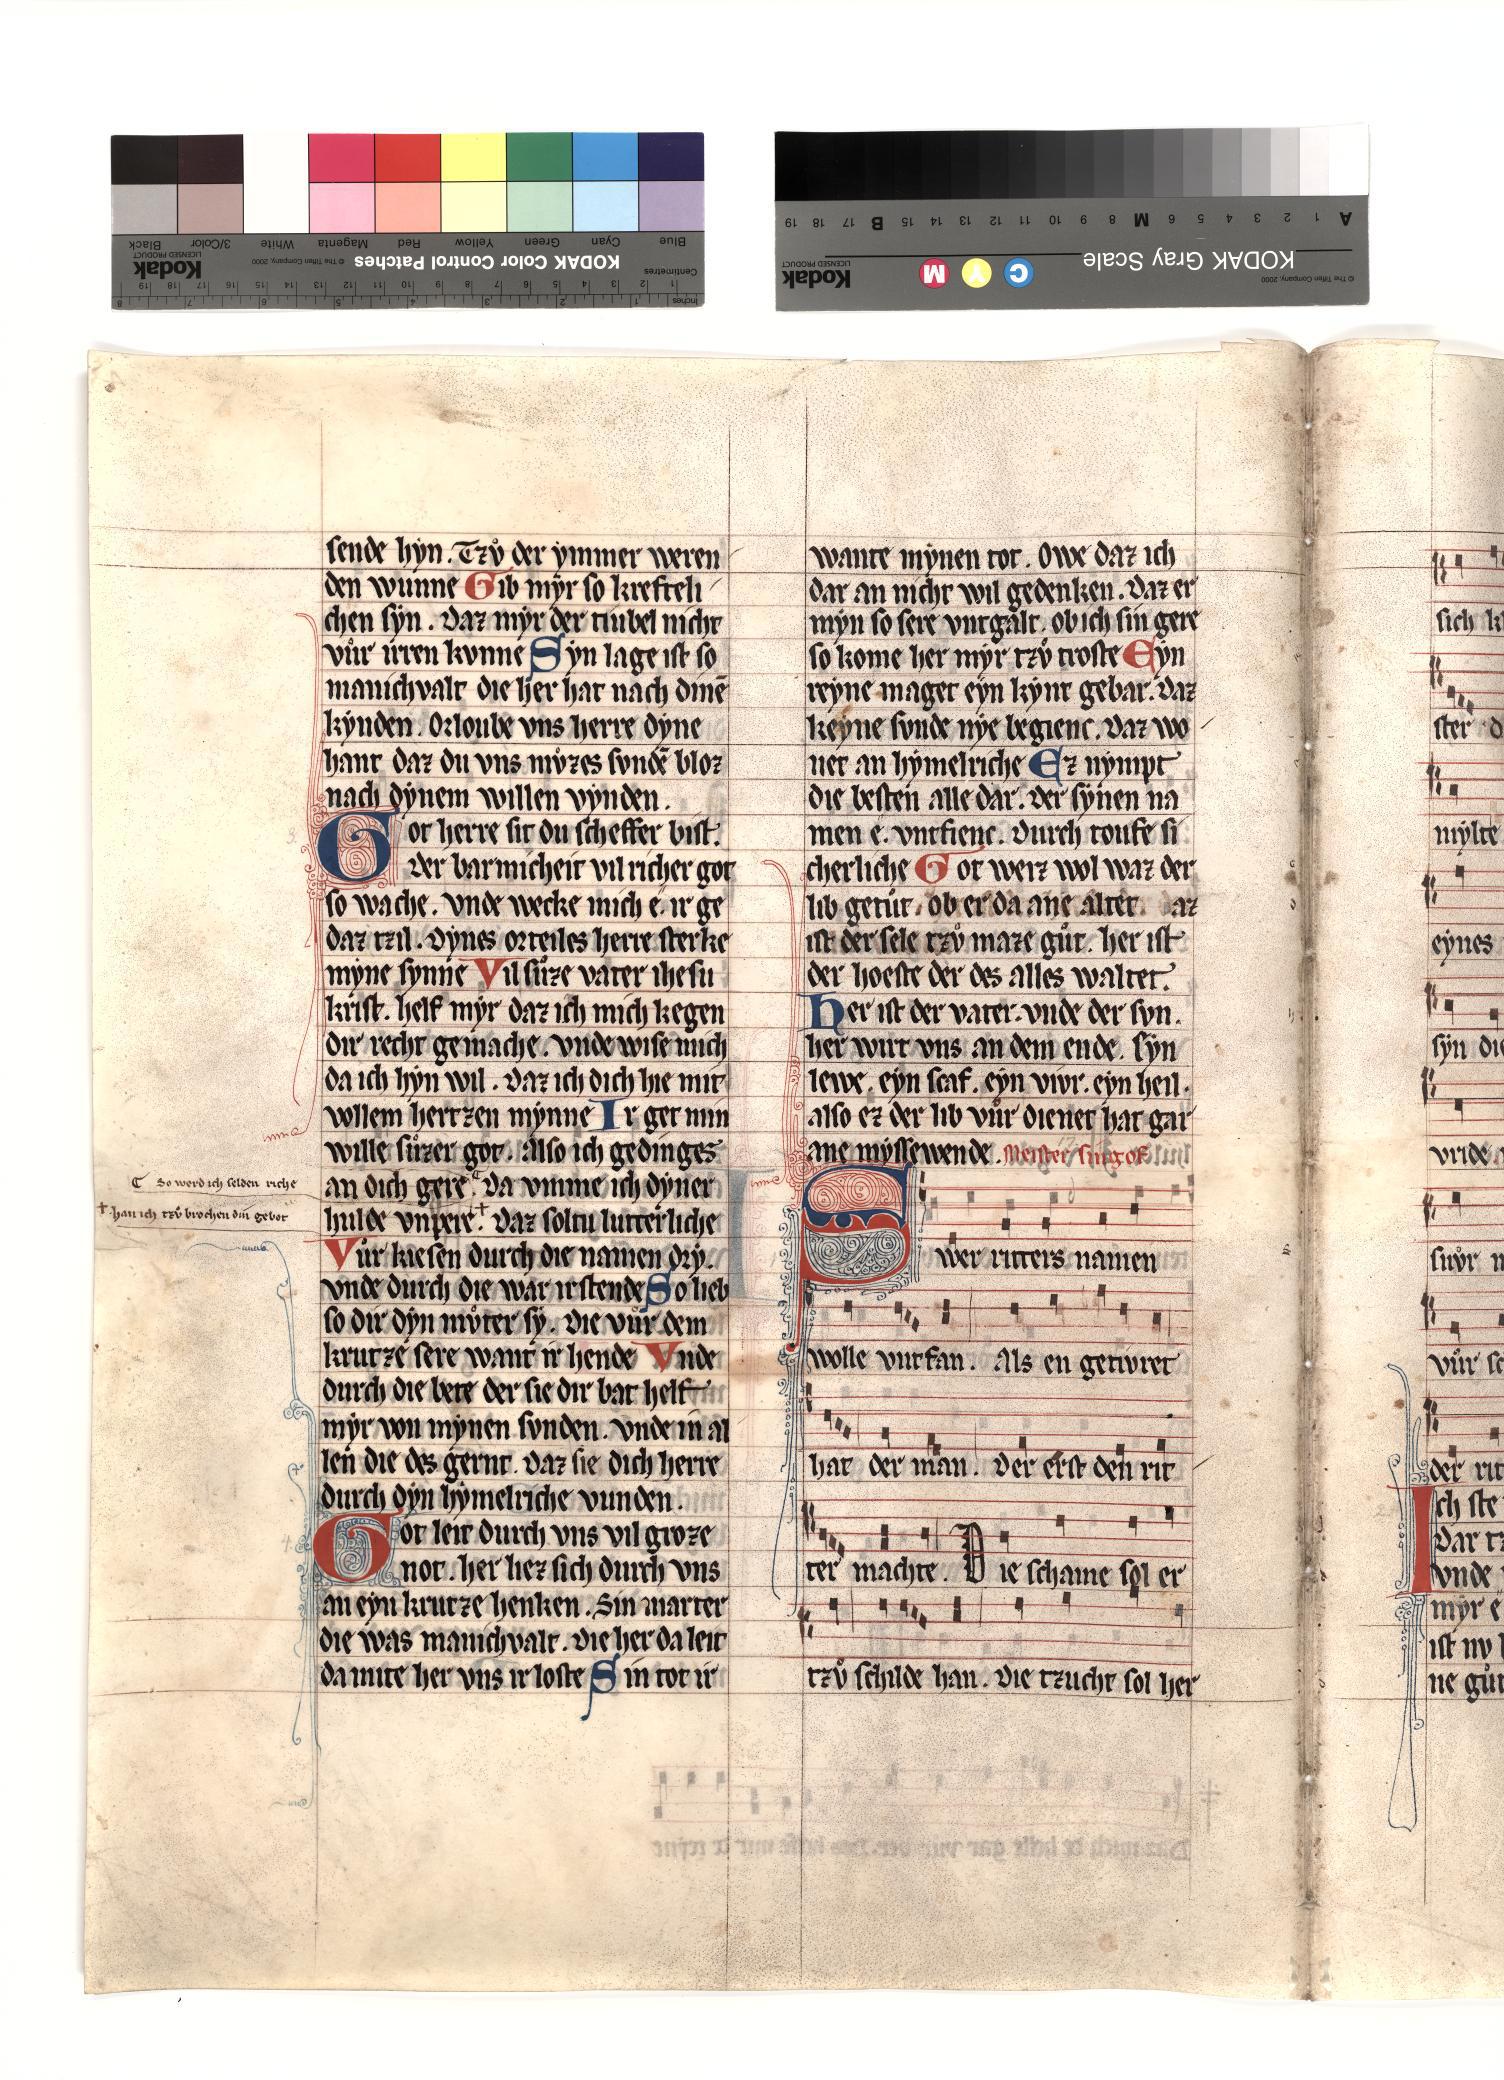 Black 3/Color White Magenta Red Yellow Green Cyan Blue
Kodak
LICENSED PRODUCT
© The Tiffen Company, 2000
KODAK Color Control Patches
Centimetres
Inches
A 1 2 3 4 5 6 M 8 9 10 11 12 13 14 15 B 17 18 19
KODAK Gray Scale
C Y M
Kodak
LICENSED PRODUCT
© The Tiffen Company, 2000
sende hyn. Tzů der ymmer weren
den wunne Gib myr so krefteli
chen syn. Daz myr der tiubel nicht
vůr irren kvnne Syn lage ist so
manichvalt die her hat nach dinē
kynden. Orloube vns herre dyne
hant daz du vns můzes svndē bloz
nach dynem willen vynden.
Got herre sit du scheffer bist.
Der barmicheit vil richer got
so wache. vnde wecke mich e. ir ge
daz tzil. Dynes orteiles herre sterke
myne synne Vil sůze vater ihesu
krist. helf myr daz ich mich kegen
dir recht gemache. vnde wise mich
da ich hyn wil. Daz ich dich hie mit
vollem hertzen mynne Ir get min
wille sůzer got. Also ich gedinges
an dich gere. Da vmme ich dyner
hulde vnpere. Daz soltu lutterliche
Vůr kiesen durch die namen dry.
vnde durch die war ir stende So lieb
so dir dyn můter sy. Die vůr dem
krutze sere want ir hende Vnde
durch die bete der sie dir bat helf
myr von mynen svnden. vnde in al
len die des gernt. Daz sie dich herre
durch dyn hymelriche vunden.
Got leit durch vns vil groze
not. her hez sich durch vns
an eyn krutze henken. Sin marter
die was manichvalt. Die her da leit
da mite her vns ir loste Sin tot ir
So werd ich selden riche
han ich tzů brochen din gebot
wante mynen tot. Owe daz ich
dar an nicht wil gedenken. Daz er
myn so sere vntgalt. ob ich sin gere
so kome her myr tzů troste Eyn
reyne maget eyn kynt gebar. Daz
keyne svnde nye begienc. Daz wo
net an hymelriche Ez nympt
die besten alle dar. Der synen na
men e. vntfienc. Durch toufe si
cherliche Got weiz wol waz der
lib getůt. ob er da ane altet. Daz
ist der sele tzů maze gůt. her ist
der hoeste der des alles waltet.
Her ist der vater. vnde der svn.
her wirt vns an dem ende. syn
lewe. eyn scaf. eyn vivr. eyn heil.
also ez der lib vůr dienet hat gar
ane myssewende. Meister singof
Swer ritters namen
wolle vntfan. Als en getivret
hat der man. Der erst den rit
ter machte. Die schame sol er
tzů schilde han. Die tzucht sol her
sich
ster
mylte
eynes
syn die
vride
suvr
vůr
der rit
Ich ste
Dar
vnde
myr e
ist nv
ne gůt